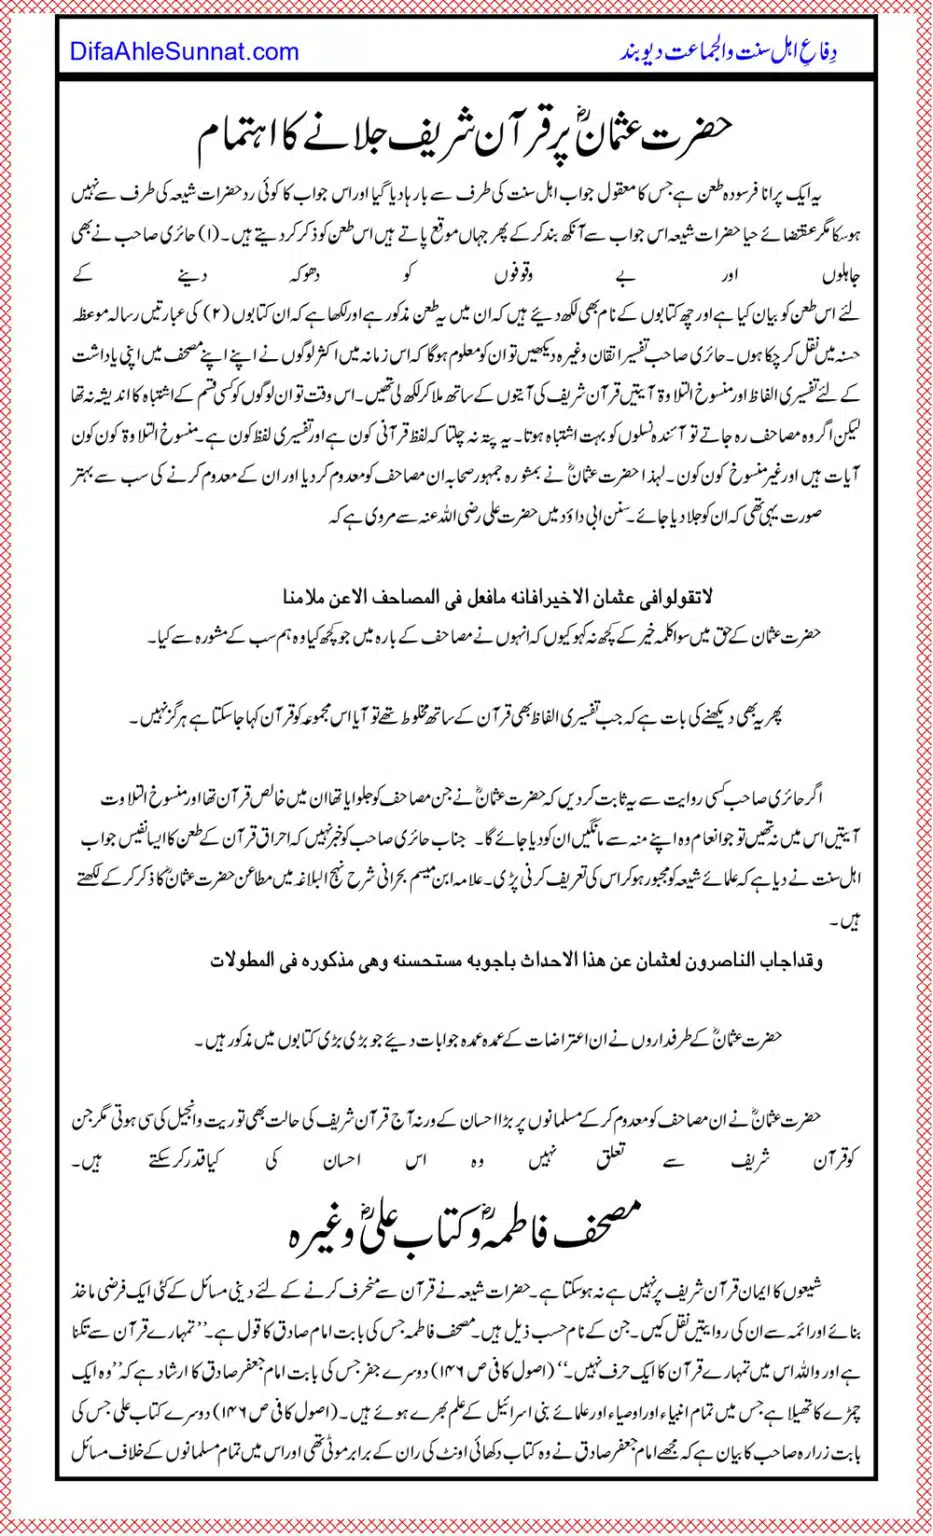 DifaAhleSunnat.com دِفاعِ اہل سنت والجماعت دیوبند
حضرت عثمانؓ پر قرآن شریف جلانے کا اہتمام
یہ ایک پرانا فرسودہ طعن ہے جس کا معقول جواب اہل سنت کی طرف سے بارہا دیا گیا اور اس جواب کا کوئی رد حضرات شیعہ کی طرف سے نہیں
ہوسکا مگر مقتضائے حیا حضرات شیعہ اس جواب سے آنکھ بند کر کے پھر جہاں موقع پاتے ہیں اس طعن کو ذکر کر دیتے ہیں۔(۱) حائری صاحب نے بھی
جاہلوں اور بے وقوفوں کو دھوکہ دینے کے
لئے اس طعن کو بیان کیا ہے اور چھ کتابوں کے نام بھی لکھ دیئے ہیں کہ ان میں یہ طعن مذکور ہے اور لکھا ہے کہ ان کتابوں (۲) کی عبارتیں رسالہ موعظہ
حسنہ میں نقل کر چکا ہوں۔ حائری صاحب تفسیر اتقان وغیرہ دیکھیں تو ان کو معلوم ہوگا کہ اس زمانہ میں اکثر لوگوں نے اپنے اپنے مصحف میں اپنی یاداشت
کے لئے تفسیری الفاظ اور منسوخ التلاوۃ آیتیں قرآن شریف کی آیتوں کے ساتھ ملا کر لکھ لی تھیں۔ اس وقت تو ان لوگوں کو کسی قسم کے اشتباہ کا اندیشہ نہ تھا
لیکن اگر وہ مصاحف رہ جاتے تو آئندہ نسلوں کو بہت اشتباہ ہوتا۔ یہ پتہ نہ چلتا کہ لفظ قرآنی کون ہے اور تفسیری لفظ کون ہے۔ منسوخ التلاوۃ کون کون
آیات ہیں اور غیر منسوخ کون کون۔ لہذا حضرت عثمانؓ نے بمشورہ جمہور صحابہ ان مصاحف کو معدوم کر دیا اور ان کے معدوم کرنے کی سب سے بہتر
صورت یہی تھی کہ ان کو جلا دیا جائے۔ سنن ابی داؤد میں حضرت علی رضی اللہ عنہ سے مروی ہے کہ
لاتقولوافی عثمان الاخیرافانه مافعل فی المصاحف الاعن ملامنا
حضرت عثمان کے حق میں سوا کلمہ خیر کے کچھ نہ کہو کیوں کہ انہوں نے مصاحف کے بارہ میں جو کچھ کیا وہ ہم سب کے مشورہ سے کیا۔
پھر یہ بھی دیکھنے کی بات ہے کہ جب تفسیری الفاظ بھی قرآن کے ساتھ مخلوط تھے تو آیا اس مجموعہ کو قرآن کہا جا سکتا ہے ہرگز نہیں۔
اگر حائری صاحب کسی روایت سے یہ ثابت کر دیں کہ حضرت عثمانؓ نے جن مصاحف کو جلوایا تھا ان میں خالص قرآن تھا اور منسوخ التلاوت
آیتیں اس میں نہ تھیں تو جو انعام وہ اپنے منہ سے مانگیں ان کو دیا جائے گا۔ جناب حائری صاحب کو خبر نہیں کہ احراق قرآن کے طعن کا ایسا نفیس جواب
اہل سنت نے دیا ہے کہ علمائے شیعہ کو مجبور ہو کر اس کی تعریف کرنی پڑی۔ علامہ ابن میسم بحرانی شرح نہج البلاغہ میں مطاعن حضرت عثمانؓ کا ذکر کر کے لکھتے
ہیں۔
وقداجاب الناصرون لعثمان عن هذا الاحداث باجوبه مستحسنه وهی مذکوره فی المطولات
حضرت عثمانؓ کے طرفداروں نے ان اعتراضات کے عمدہ عمدہ جوابات دیئے جو بڑی بڑی کتابوں میں مذکور ہیں۔
حضرت عثمانؓ نے ان مصاحف کو معدوم کر کے مسلمانوں پر بڑا احسان کے ورنہ آج قرآن شریف کی حالت بھی توریت وانجیل کی سی ہوتی مگر جن
کو قرآن شریف سے تعلق نہیں وہ اس احسان کی کیا قدر کر سکتے ہیں۔
مصحف فاطمہؓ وکتاب علیؓ وغیرہ
شیعوں کا ایمان قرآن شریف پر نہیں ہے نہ ہو سکتا ہے۔ حضرات شیعہ نے قرآن سے منحرف کرنے کے لئے دینی مسائل کے کئی ایک فرضی ماخذ
بنائے اور ائمہ سے ان کی روایتیں نقل کیں۔ جن کے نام حسب ذیل ہیں۔ مصحف فاطمہ جس کی بابت امام صادق کا قول ہے۔’’تمہارے قرآن سے تگنا
ہے اور واللہ اس میں تمہارے قرآن کا ایک حرف نہیں۔‘‘ (اصول کافی ص ۱۴۶) دوسرے جفر جس کی بابت امام جعفر صادق کا ارشاد ہے کہ’’وہ ایک
چمڑے کا تھیلا ہے جس میں تمام انبیاء اور اوصیاء اور علمائے بنی اسرائیل کے علم بھرے ہوئے ہیں۔ (اصول کافی ص ۱۴۶) دوسرے کتاب علی جس کی
بابت زرارہ صاحب کا بیان ہے کہ مجھے امام جعفر صادق نے وہ کتاب دکھائی اونٹ کی ران کے برابر موٹی تھی اور اس میں تمام مسلمانوں کے خلاف مسائل